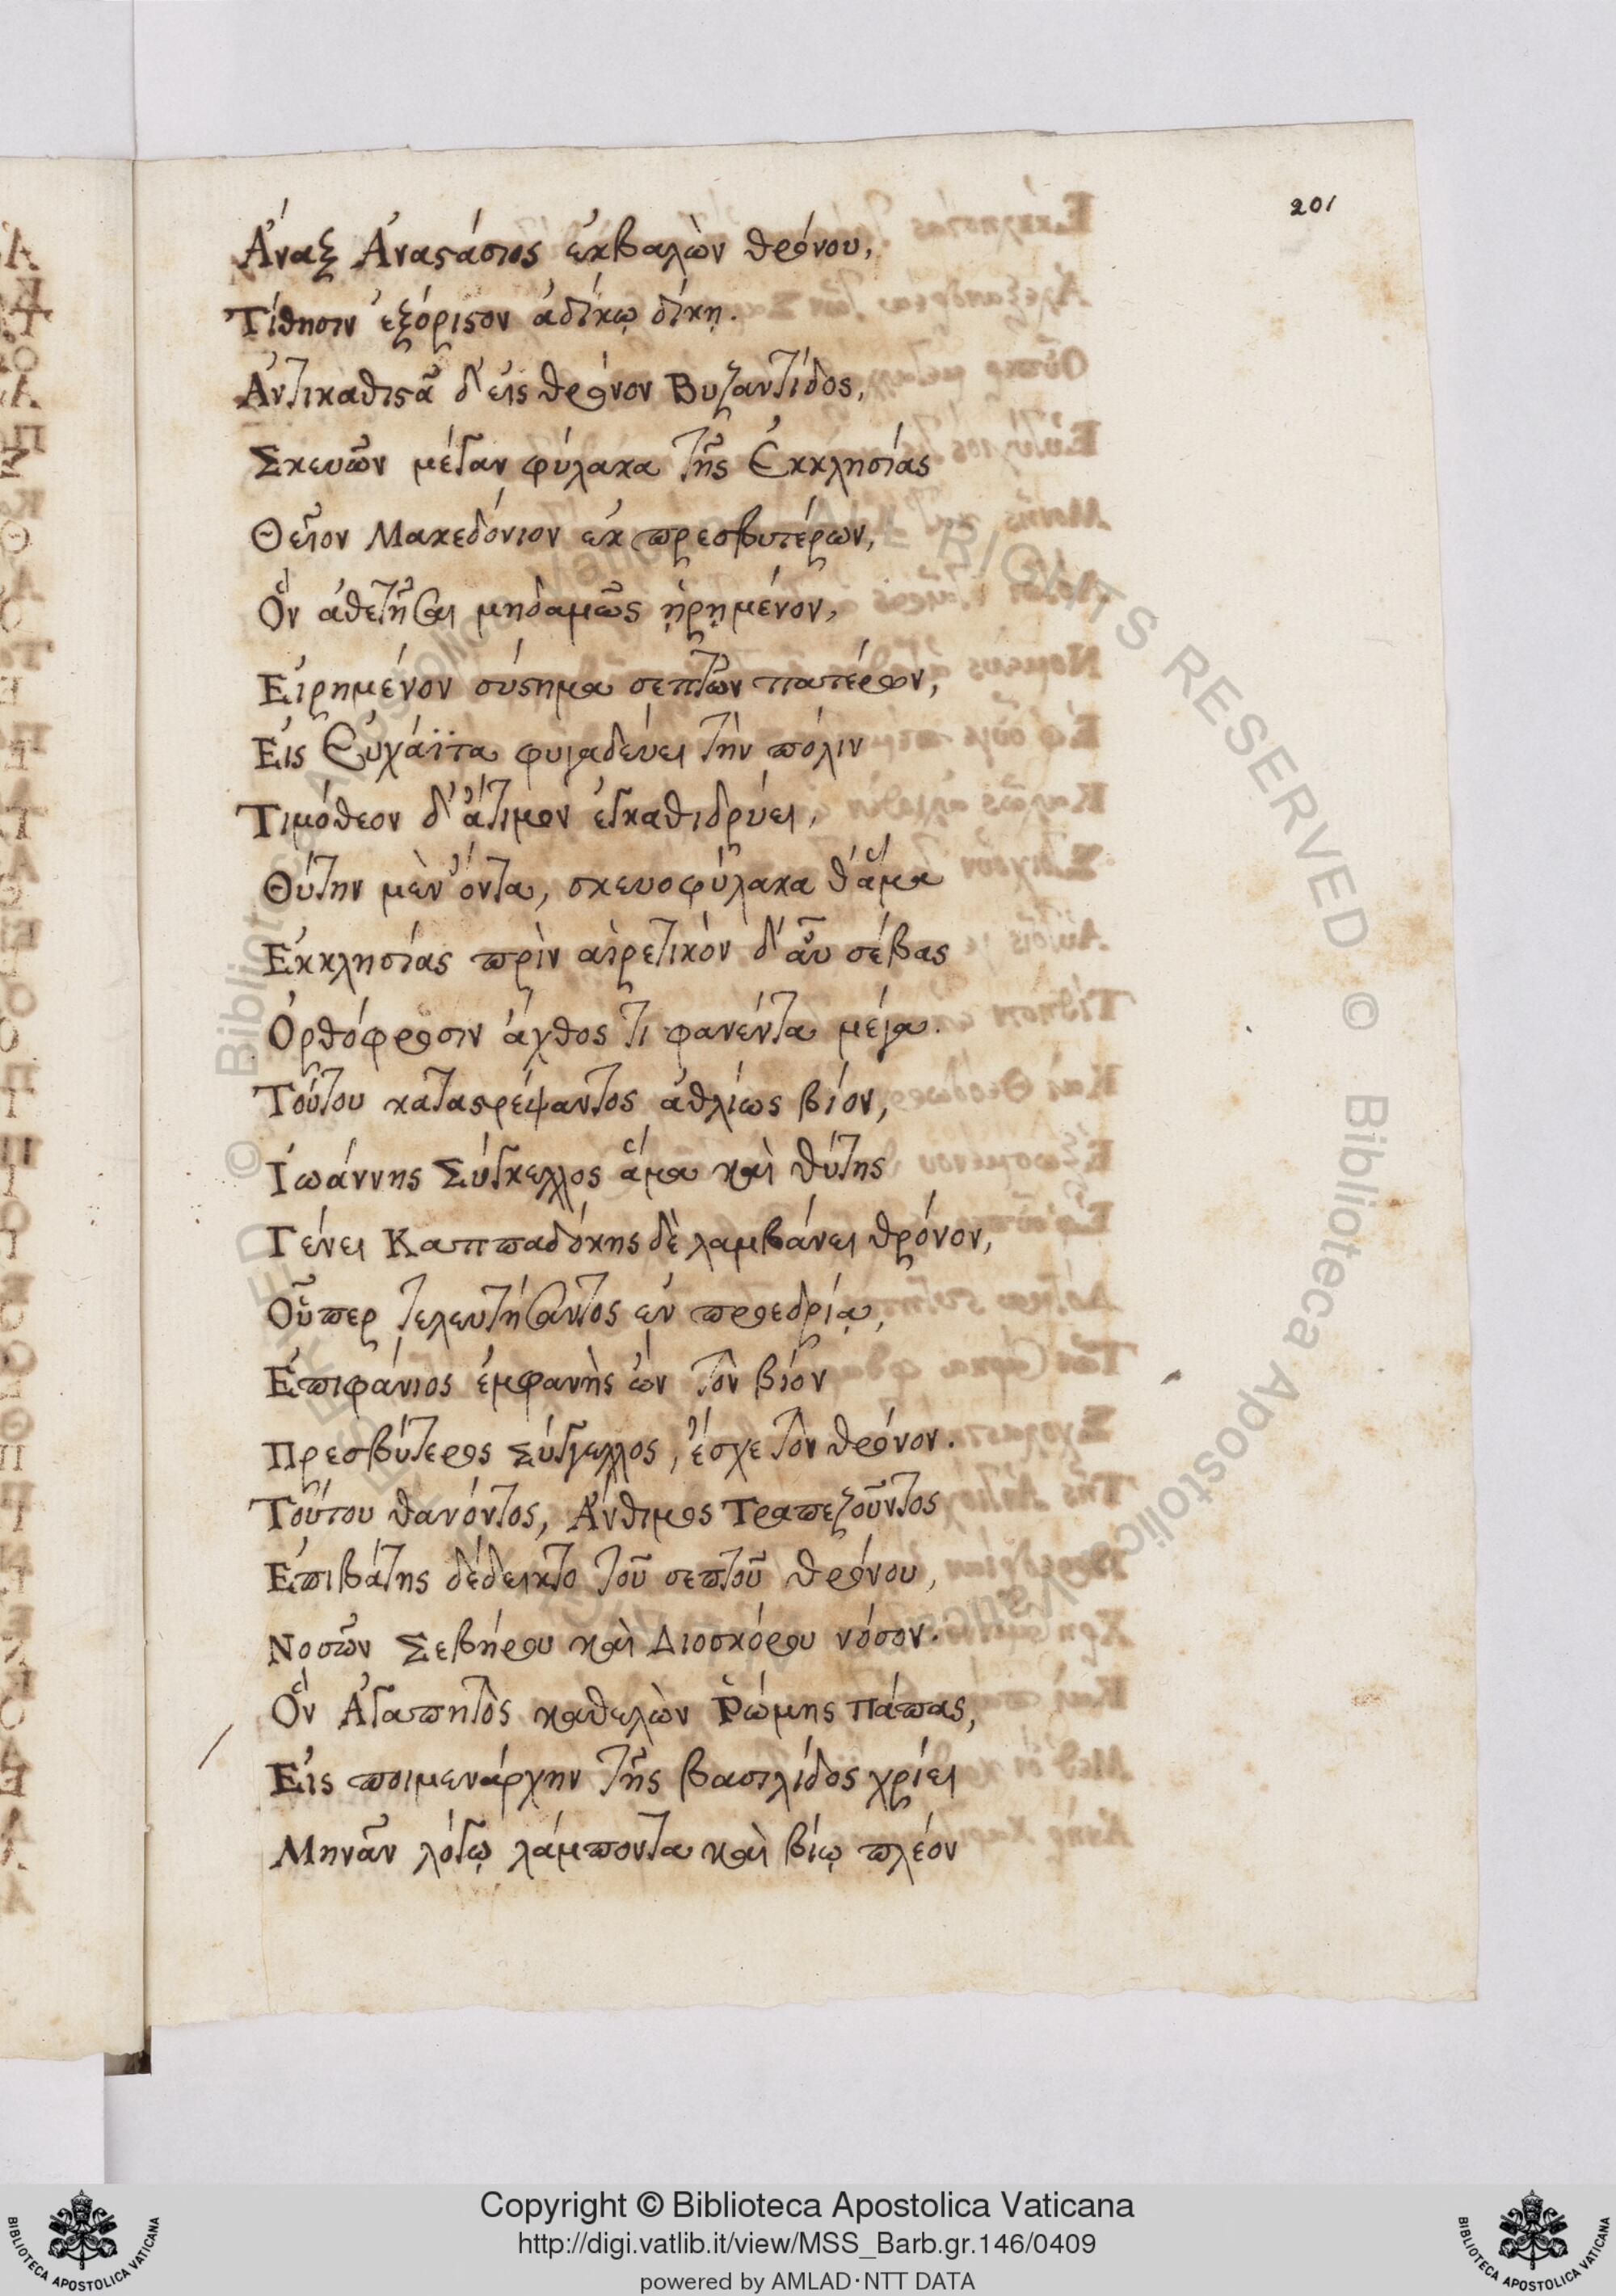 201
Ἄναξ Ἀναστάσιος ἐκβαλὼν θρόνου,
Τίθησιν ἐξόριστον ἀδίκῳ δίκῃ.
Ἀντικαθιστᾶ δ' εἰς θρόνον Βυζαντίδος,
Σκευῶν μέγαν φύλακα τῆς Ἐκκλησίας
Θεῖον Μακεδόνιον ἐκ πρεσβυτέρων,
Ὃν ἀθετῆσαι μηδαμῶς ᾑρημένον,
Εἰρημένον σύστημα σεπτῶν πατέρων,
Εἰς Εὐχάϊτα φυγαδεύει τὴν πόλιν
Τιμόθεον δ' ἄτιμον ἐγκαθιδρύει,
Θύτην μὲν ὄντα, σκευοφύλακα θ' ἅμα
Ἐκκλησίας πρὶν αἱρετικὸν δ' αὖ σέβας
Ὀρθόφροσιν ἄχθος τι φανέντα μέγα.
Τούτου καταστρέψαντος ἀθλίως βίον,
Ἰωάννης Σύγκελλος ἅμα καὶ θύτης
Γένει Καππαδόκης δὲ λαμβάνει θρόνον,
Οὗπερ τελευτήσαντος ἐν προεδρίᾳ,
Ἐπιφάνιος ἐμφανὴς ὢν τὸν βίον
Πρεσβύτερος Σύγγελλος, ἔσχε τὸν θρόνον.
Τούτου θανόντος, Ἄνθιμος Τραπεζοῦντος
Ἐπιβάτης δέδεικτο τοῦ σεπτοῦ θρόνου,
Νοσῶν Σεβήρου καὶ Διοσκόρου νόσον.
Ὃν Ἀγαπητὸς καθελὼν Ῥώμης πάπας,
Εἰς ποιμενάρχην τῆς βασιλίδος χρίει
Μηνᾶν λόγῳ λάμποντα καὶ βίῳ πλέον
Copyright © Biblioteca Apostolica Vaticana
http://digi.vatlib.it/view/MSS_Barb.gr.146/0409
powered by AMLAD·NTT DATA
BIBLIOTECA APOSTOLICA VATICANA
BIBLIOTECA APOSTOLICA VATICANA